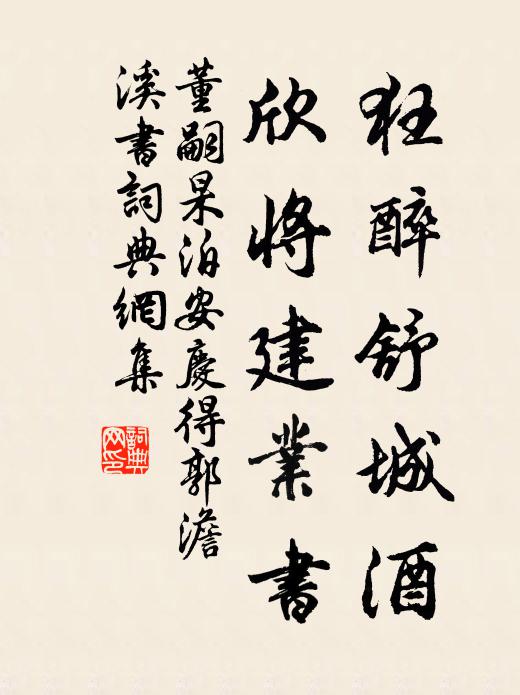 狂醉舒城酒
欣將建業書
董嗣杲泊安慶得郭澹
溪書詞典網集
詞典網印